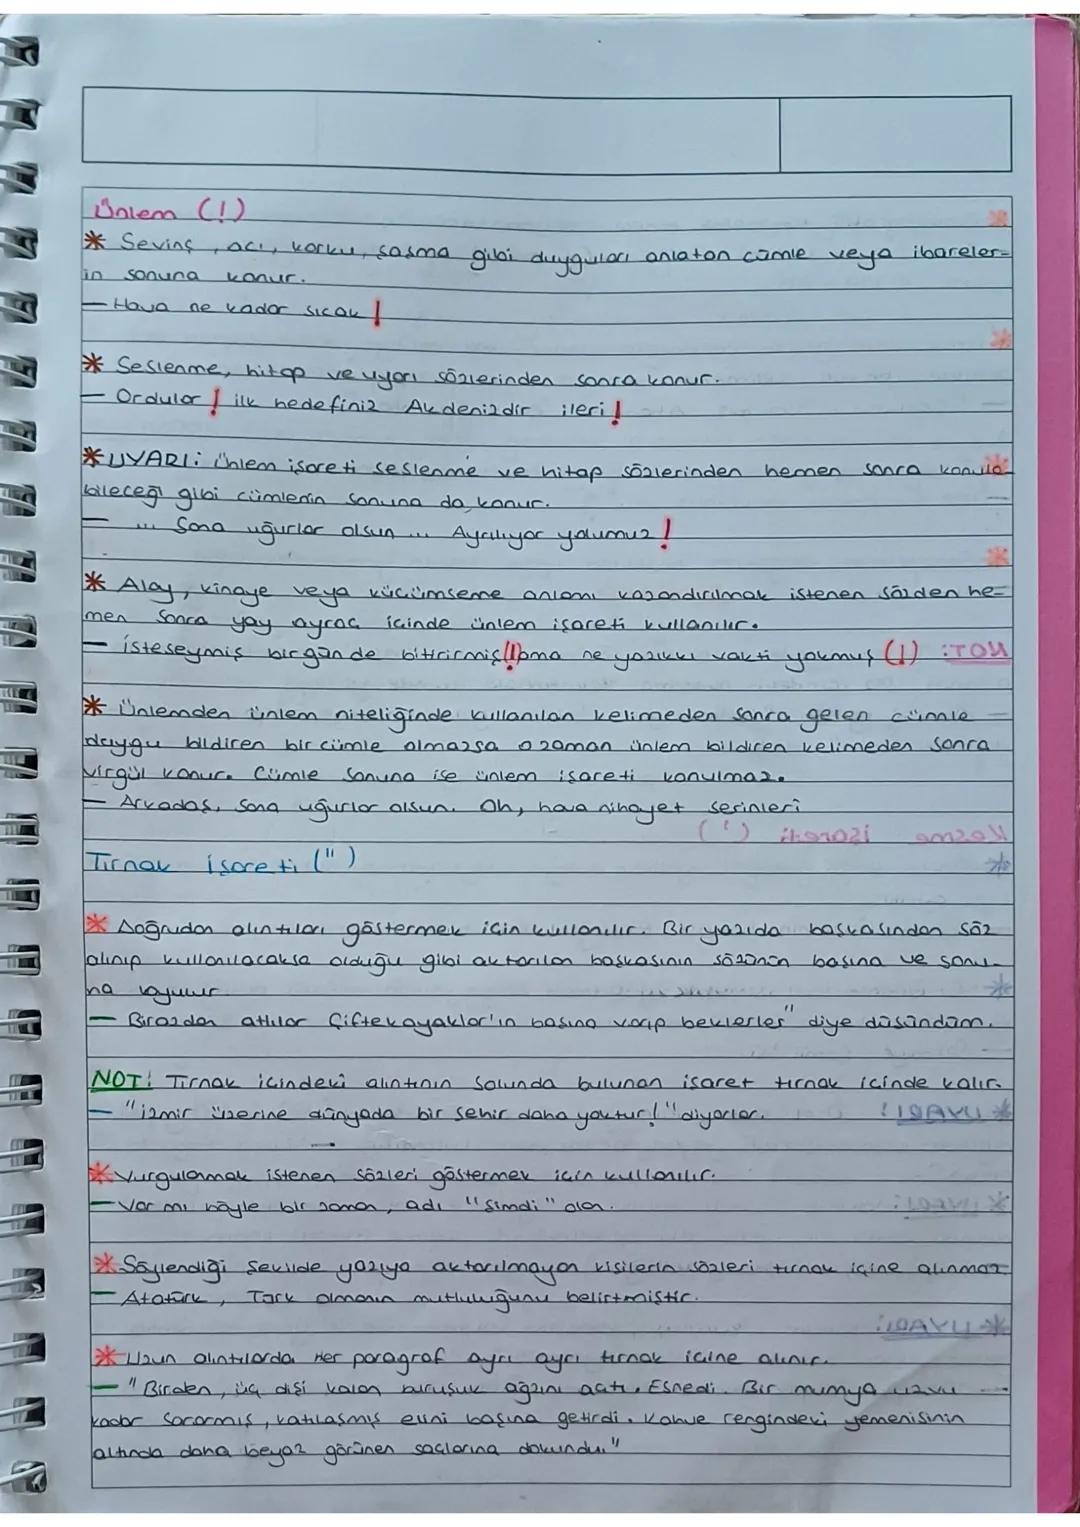 Ünlem (!)
* Sevinç, acı, korku, şaşma gibi duyguları anlatan cümle veya ibareler-
in sonuna konur.
– Hava ne kadar sıcak !
* Seslenme, hitap ve uyarı sözlerinden sonra konur.
– Ordular ! ilk hedefiniz Akdenizdir ileri !
* UYARI: Ünlem işareti seslenme ve hitap sözlerinden hemen sonra konula-
bileceği gibi cümlenin sonuna da konur.
– ... Sana uğurlar olsun ... Ayrılıyor yolumuz !
* Alay, kinaye veya küçümseme anlamı kazandırılmak istenen sözden he-
men sonra yay ayraç içinde ünlem işareti kullanılır.
– İsteseymiş bir günde bitirirmiş(!)ama ne yazıkki vakti yokmuş (!)
* Ünlemden ünlem niteliğinde kullanılan kelimeden sonra gelen cümle
duygu bildiren bir cümle olmazsa o zaman ünlem bildiren kelimeden sonra
virgül konur. Cümle sonuna ise ünlem işareti konulmaz.
– Arkadaş, sana uğurlar olsun. Oh, hava nihayet serinleri
Tırnak İşareti (")
* Doğrudan alıntıları göstermek için kullanılır. Bir yazıda başkasından söz
alınıp kullanılacaksa olduğu gibi aktarılan başkasının sözünün başına ve sonu-
na
– Birazdan atlılar Çiftekayaklar'ın başına varıp beklerler" diye düşündüm.
NOT: Tırnak içindeki alıntının solunda bulunan işaret tırnak içinde kalır.
– "İzmir üzerine dünyada bir şehir daha yoktur!" diyorlar.
* Vurgulanmak istenen sözleri göstermek için kullanılır.
– Var mı böyle bir zaman, adı "Şimdi" olan.
* Söylendiği şekilde yazıya aktarılmayan kişilerin sözleri tırnak içine alınmaz
– Atatürk, Türk olmanın mutluluğunu belirtmiştir.
* Uzun alıntılarda Her paragraf ayrı ayrı tırnak içine alınır.
– "Birden, üç dişi kalan buruşuk ağzını açtı. Esnedi. Bir mumya uzvu
kadar sararmış, katılaşmış elini başına getirdi. Kahve rengindeki yemenisinin
altında daha beyaz görünen saçlarına dokundu."